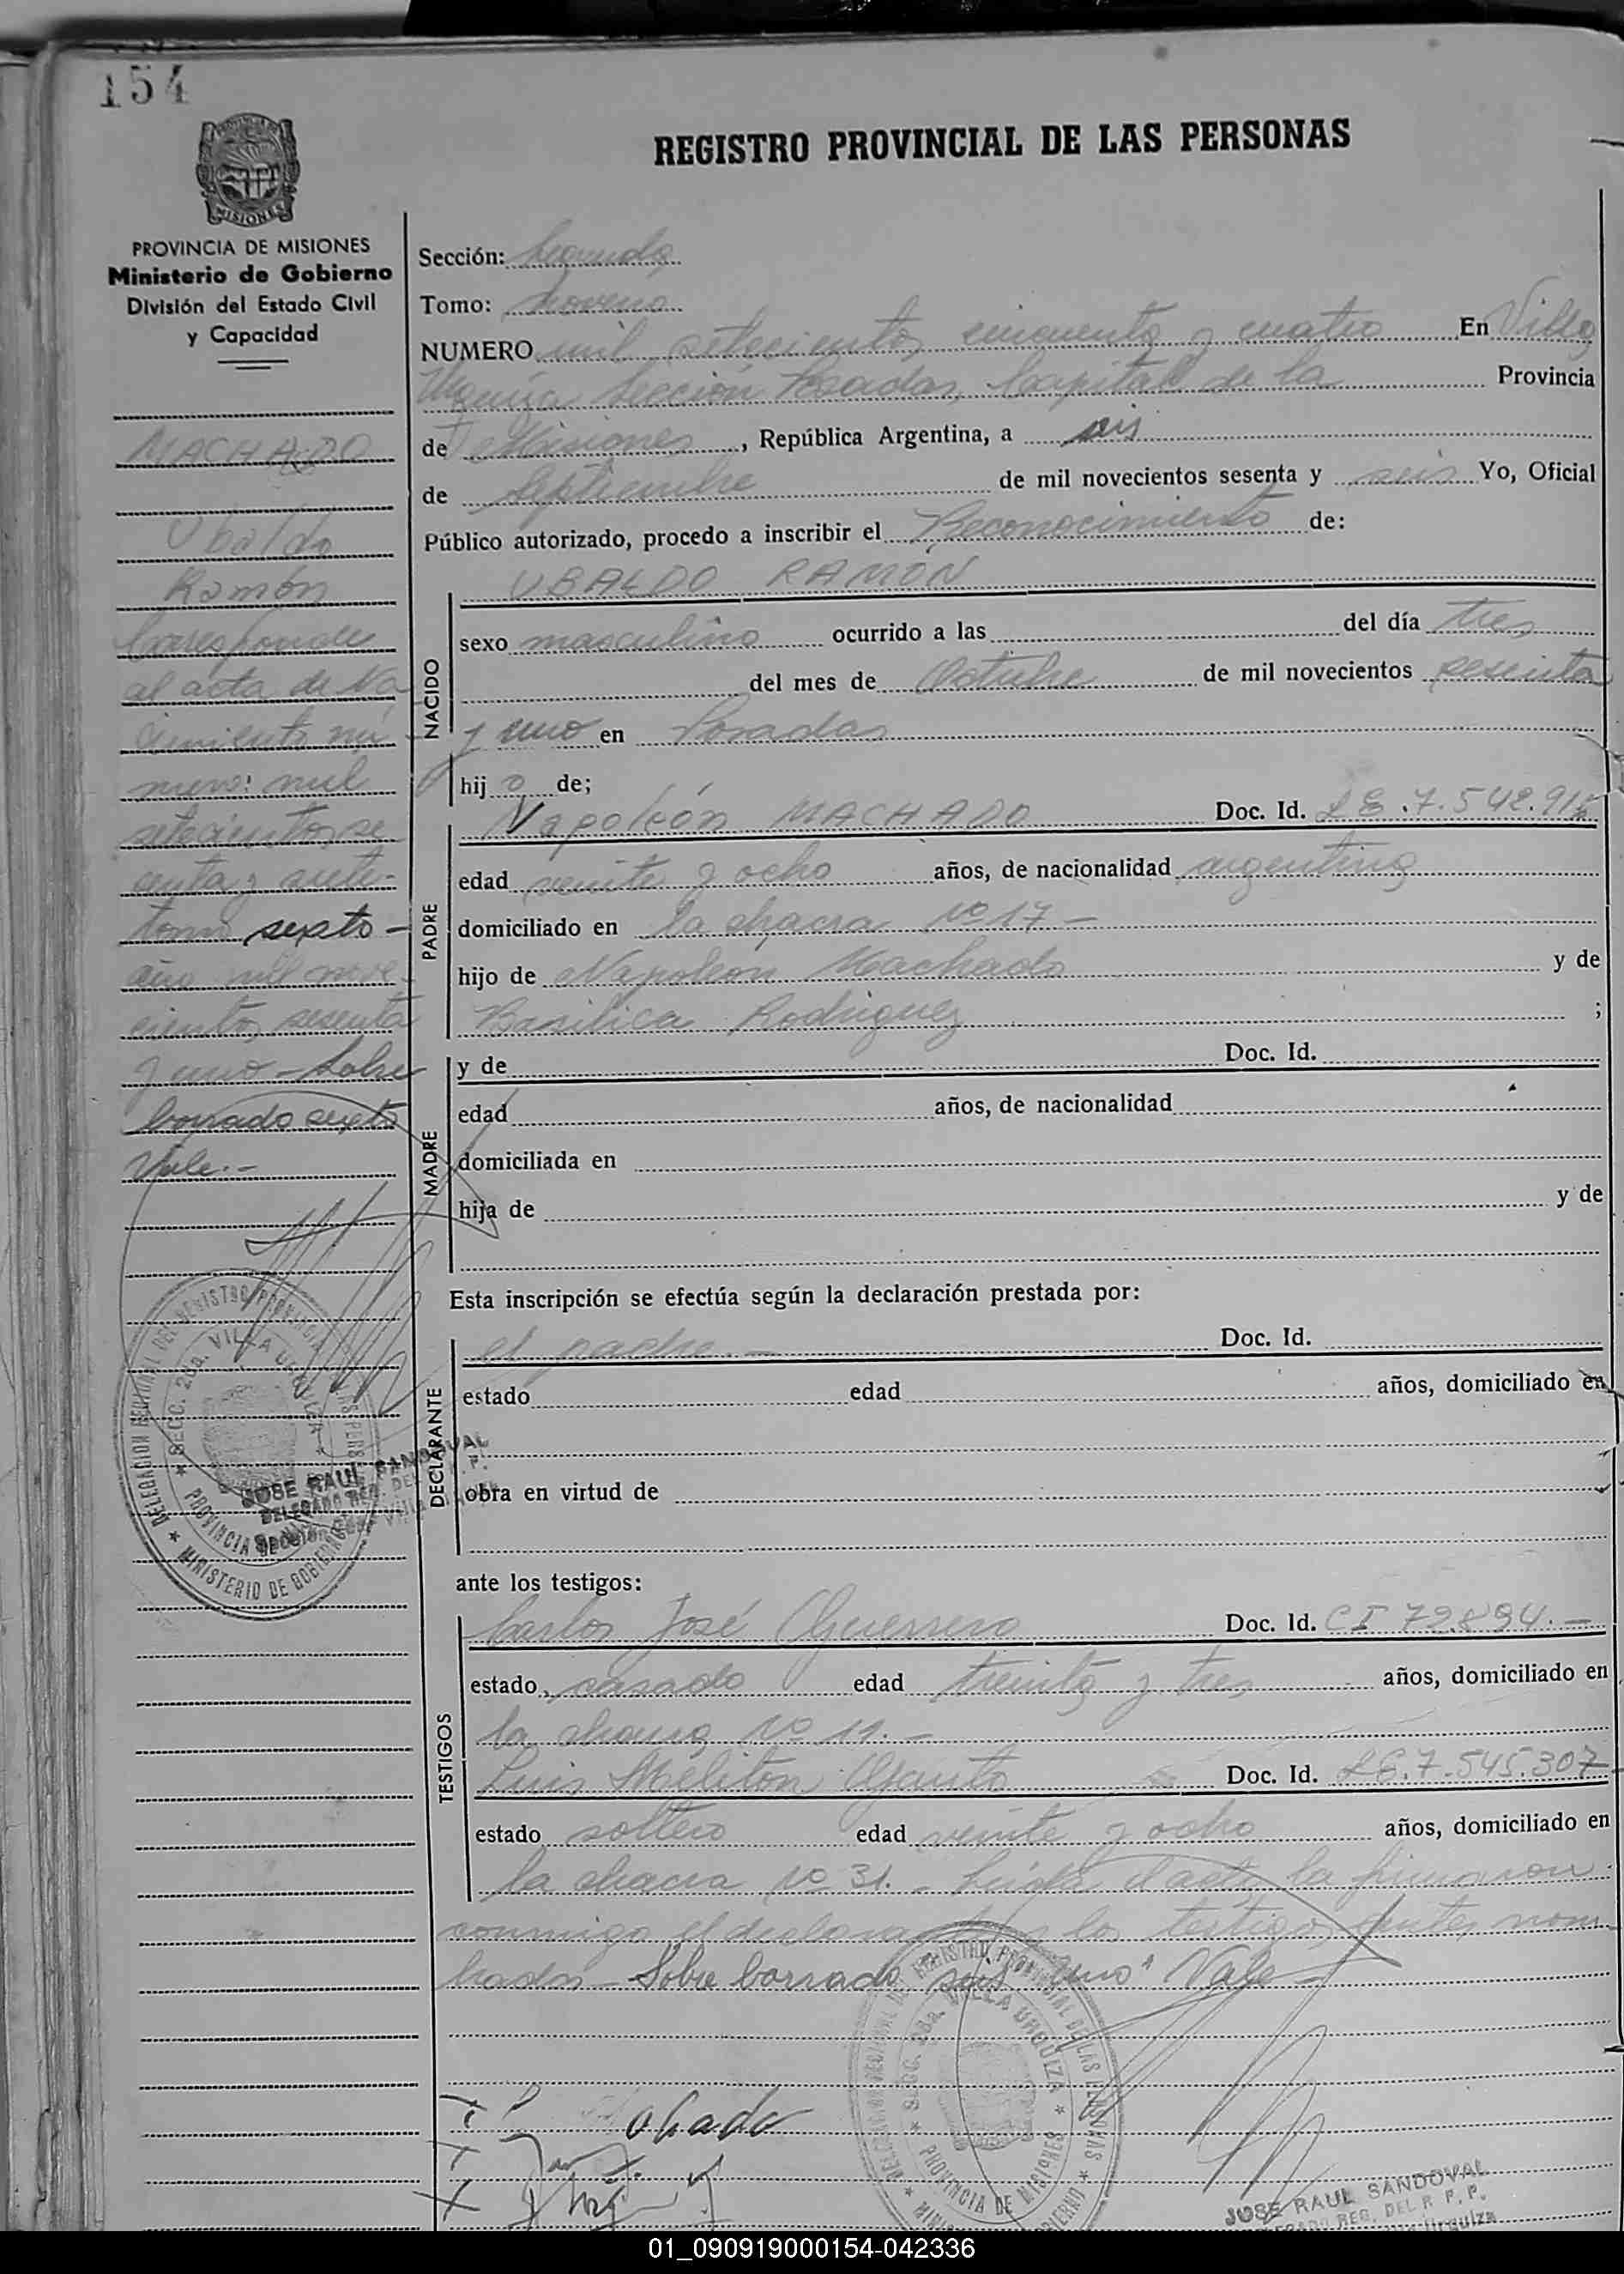 154
REGISTRO PROVINCIAL DE LAS PERSONAS
MISIONES
PROVINCIA DE MISIONES
Ministerio de Gobierno
División del Estado Civil
y Capacidad
MACHADO
Ubaldo
Ramón
Corresponde
al acta de Na
cimiento nú
mero: mil
setecientos se
senta y siete-
tomo sexto -
año mil nove-
cientos sesenta
y uno - Sobre
borrado sexto
Vale.-
Sección: Segunda
Tomo: Noveno
NUMERO mil setecientos cincuenta y cuatro En Villa
Urquiza Sección Posadas, Capital de la Provincia
de Misiones, República Argentina, a seis
de Septiembre de mil novecientos sesenta y seis Yo, Oficial
Público autorizado, procedo a inscribir el Reconocimiento de:
NACIDO
UBALDO RAMÓN
sexo masculino ocurrido a las del día tres
del mes de Octubre de mil novecientos sesenta
y uno en Posadas
hijo de;
PADRE
Napoleón MACHADO Doc. Id. LE.7.542.91
edad veinte y ocho años, de nacionalidad argentina
domiciliado en la chacra Nº 17 -
hijo de Napoleón Machado y de
Basilica Rodriguez ;
MADRE
y de Doc. Id.
edad años, de nacionalidad
domiciliada en
hija de y de
Esta inscripción se efectúa según la declaración prestada por:
DECLARANTE
el padre. - Doc. Id.
estado edad años, domiciliado en
obra en virtud de
ante los testigos:
TESTIGOS
Carlos José Guerrero Doc. Id. CI 72.894.-
estado casado edad treinta y tres años, domiciliado en
la chacra Nº 11.-
Luis Meliton Doc. Id. LE.7.545.307
estado soltero edad veinte y ocho años, domiciliado en
la chacra Nº 31.- Leída el acta la firmaron
conmigo el declarante y los testigos antes nom-
brados - Sobre borrado "seis" "uno" Vale -
DELEGACION REGIONAL DEL REGISTRO PROVINCIAL DE LAS PERSONAS
SECC. 2da. VILLA URQUIZA
PROVINCIA DE MISIONES
MINISTERIO DE GOBIERNO
JOSE RAUL SANDOVAL
DELEGADO REG. DEL R. P. P.
JOSE RAUL SANDOVAL
DELEGADO REG. DEL R. P. P.
Urquiza
01_090919000154-042336